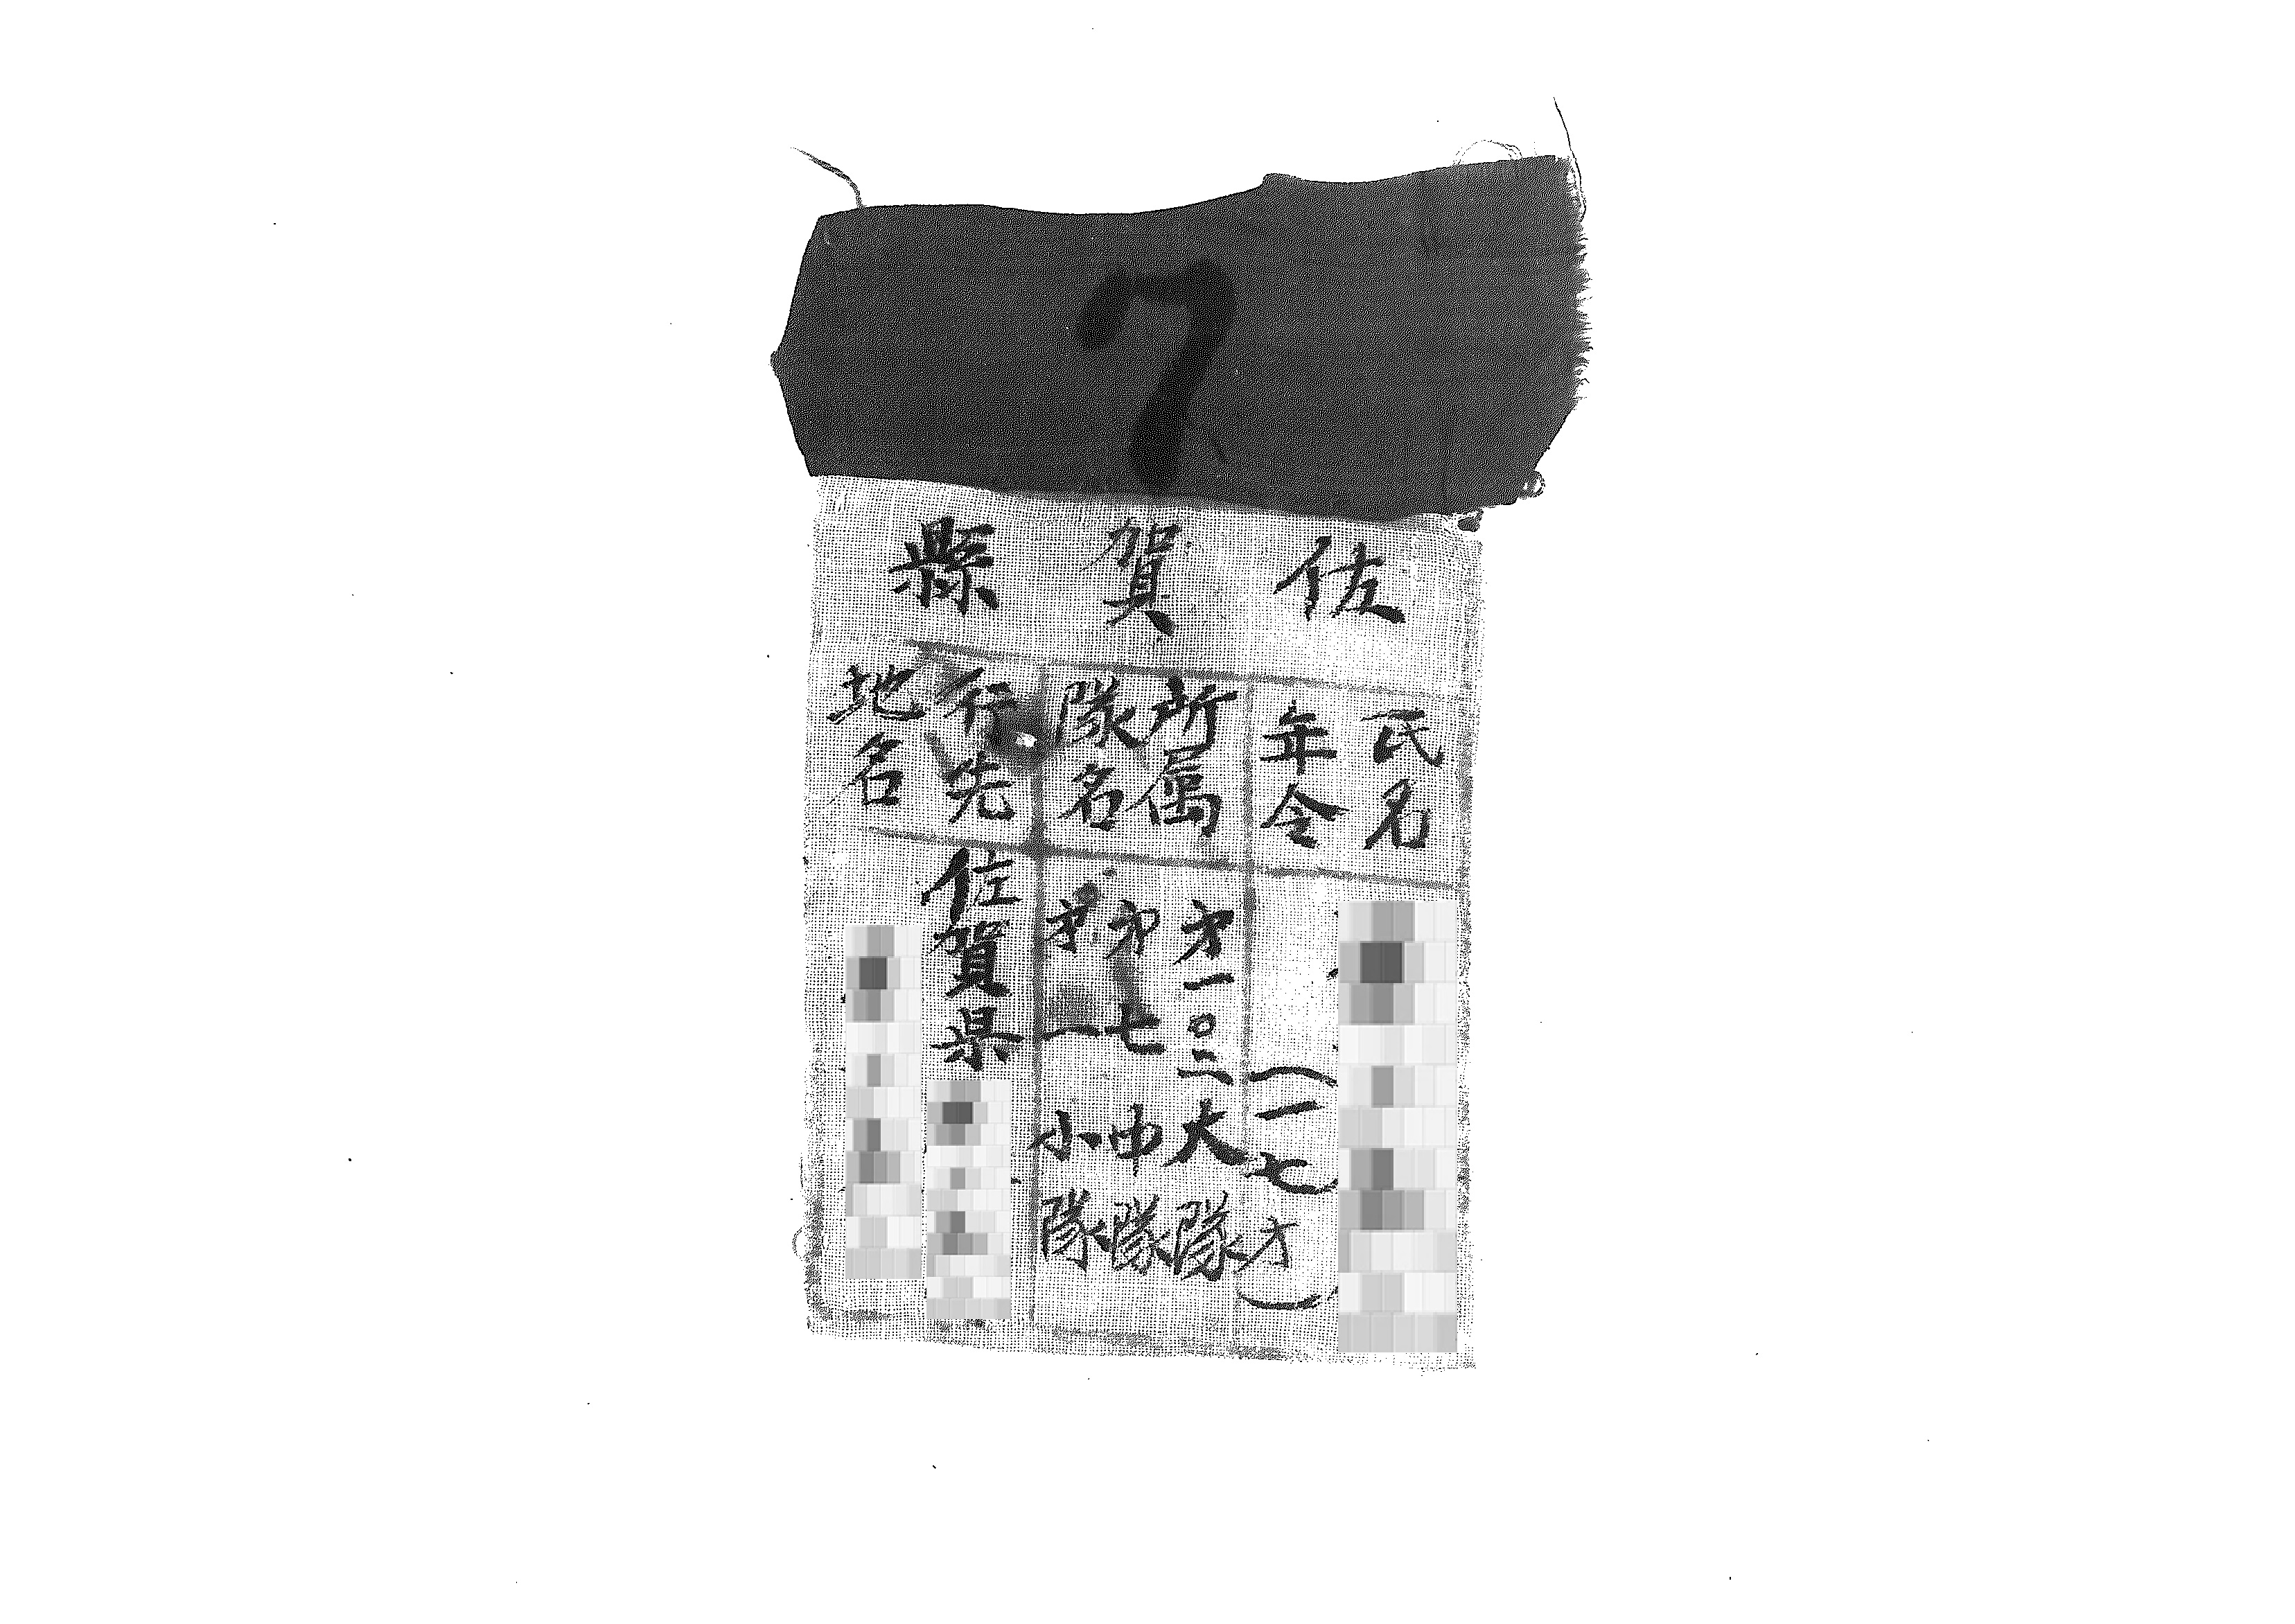 7
佐賀縣
氏名
年令
(一七才)
所属
隊名
才一〇二大隊
才七中隊
才一小隊
行先
地名
佐賀県